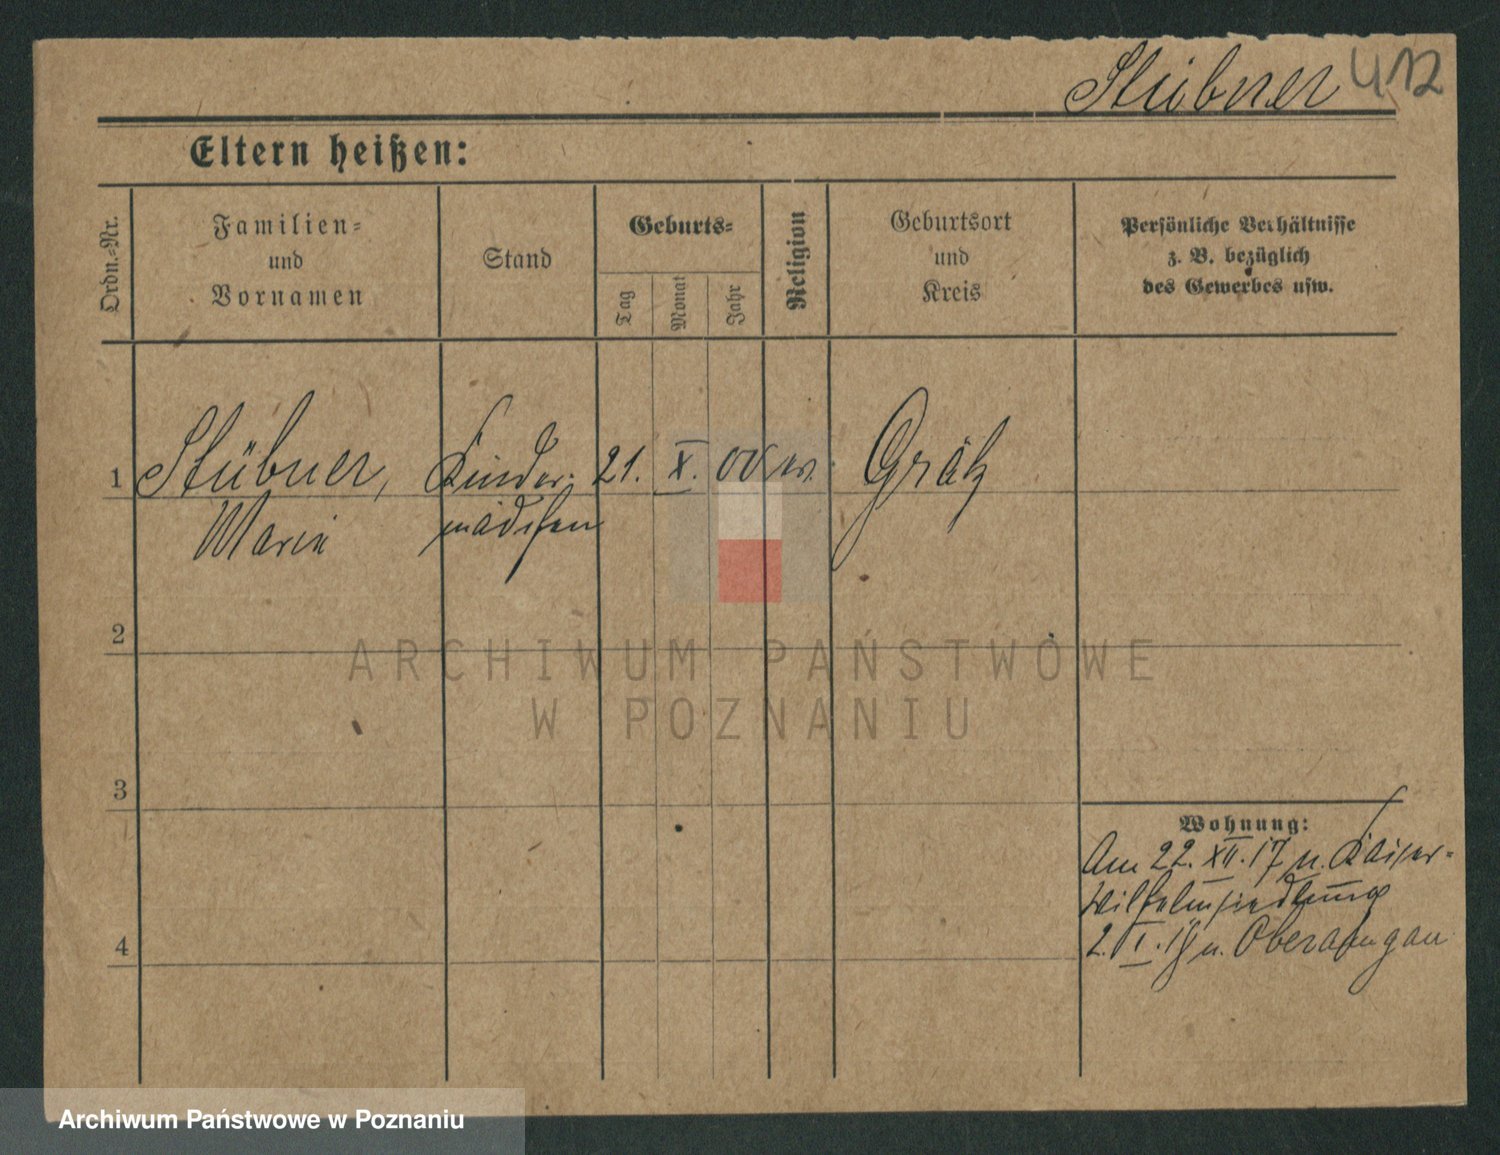 Stübner 412
Eltern heißen:
Ordn.-Nr.
Familien-
und
Vornamen
Stand
Geburts-
Tag
Monat
Jahr
Religion
Geburtsort
und
Kreis
Persönliche Verhältnisse
z. B. bezüglich
des Gewerbes usw.
1
Stübner,
Marie
Kinder-
mädchen
21.
X.
00
ev.
Grätz
2
3
4
Wohnung:
Am 22. XII. 17 n. Kaiser-
Wilhelmsiedlung
2. I. 18 n.
ARCHIWUM PAŃSTWOWE
W POZNANIU
Archiwum Państwowe w Poznaniu